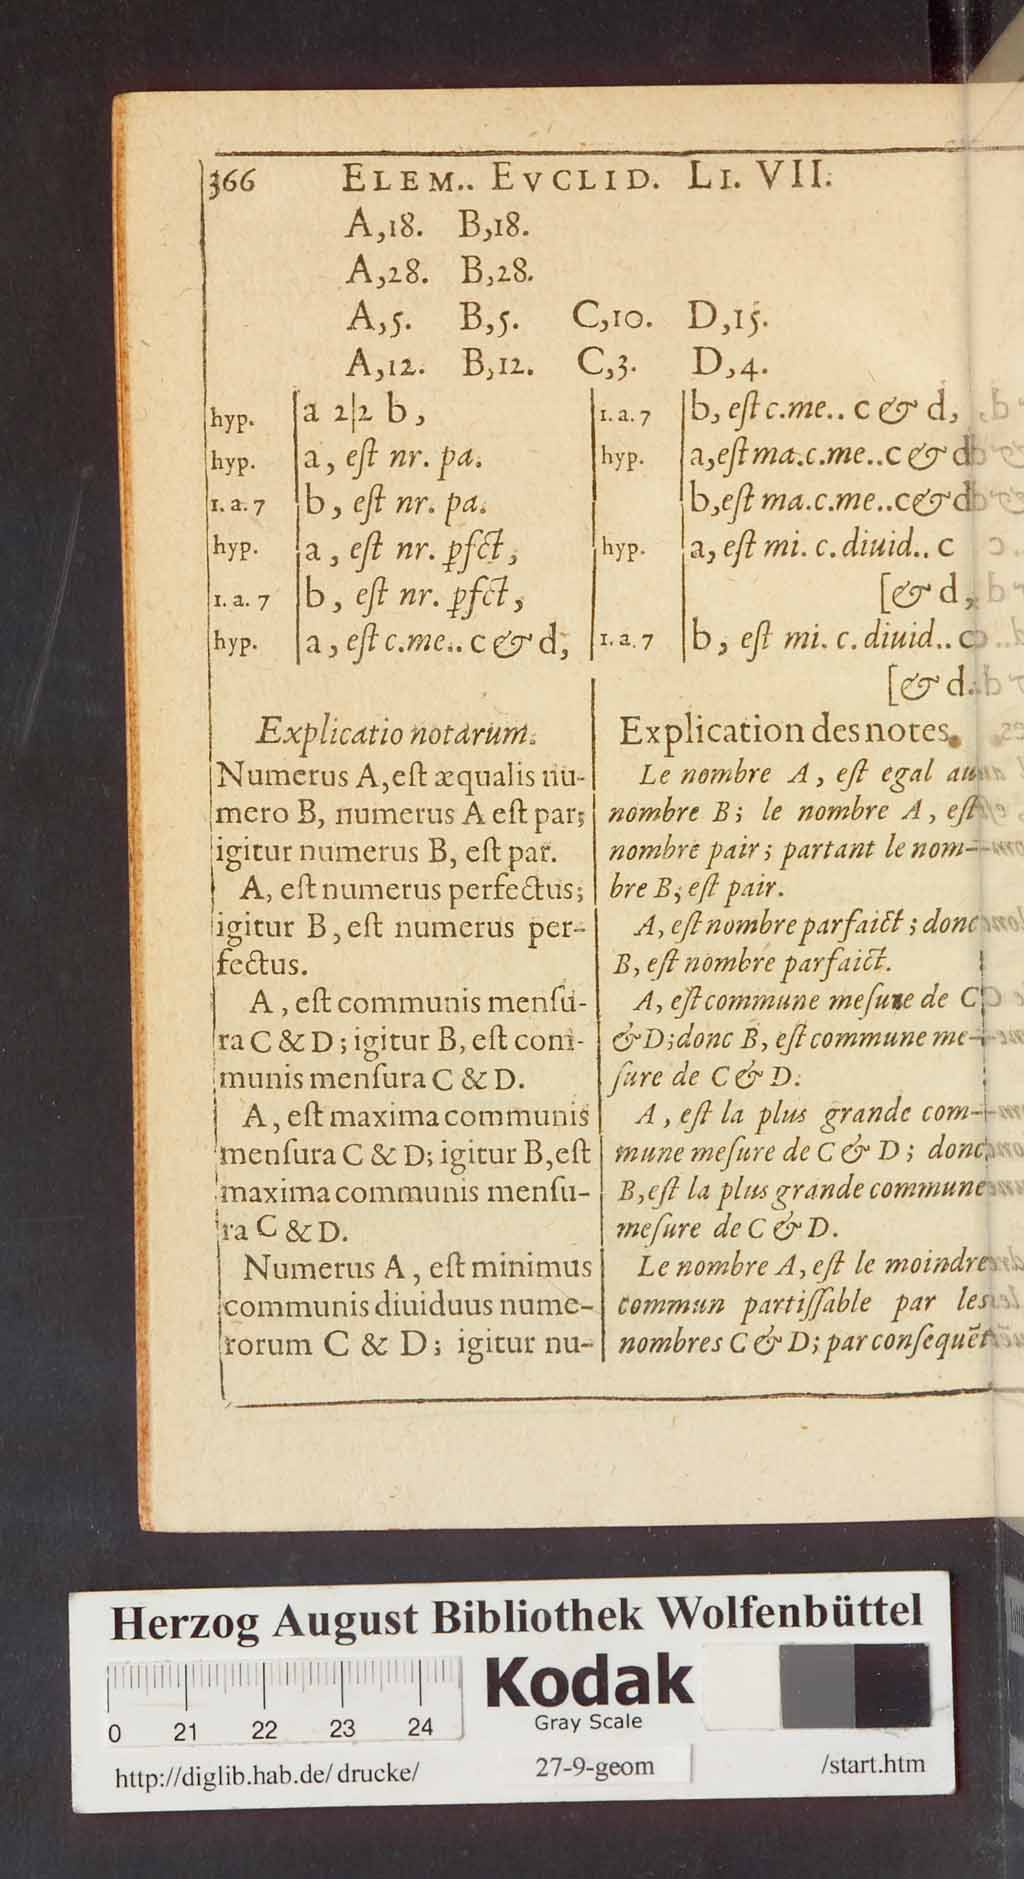 366 ELEM.. EVCLID. LI. VII.
A,18. B,18.
A,28. B,28.
A,5. B,5. C,10. D,15.
A,12. B,12. C,3. D,4.
hyp. a 2|2 b,
hyp. a, eſt nr. pa.
1. a. 7 b, eſt nr. pa.
hyp. a, eſt nr. pfct,
1. a. 7 b, eſt nr. pfct,
hyp. a, eſt c.me.. c & d,
1. a. 7 b, eſt c.me.. c & d,
hyp. a, eſt ma.c.me..c & d
b, eſt ma.c.me..c & d
hyp. a, eſt mi. c. diuid.. c
[& d,
1. a. 7 b, eſt mi. c. diuid.. c
[& d.
Explicatio notarum.
Numerus A, eſt æqualis nu-
mero B, numerus A eſt par;
igitur numerus B, eſt par.
A, eſt numerus perfectus;
igitur B, eſt numerus per-
fectus.
A, eſt communis menſu-
ra C & D; igitur B, eſt com-
munis menſura C & D.
A, eſt maxima communis
menſura C & D; igitur B, eſt
maxima communis menſu-
ra C & D.
Numerus A, eſt minimus
communis diuiduus nume-
rorum C & D; igitur nu-
Explication des notes.
Le nombre A, eſt egal au
nombre B; le nombre A, eſt
nombre pair; partant le nom-
bre B, eſt pair.
A, eſt nombre parfaict; donc
B, eſt nombre parfaict.
A, eſt commune meſure de C
& D; donc B, eſt commune me-
ſure de C & D.
A, eſt la plus grande com-
mune meſure de C & D; donc
B, eſt la plus grande commune
meſure de C & D.
Le nombre A, eſt le moindre
commun partiſſable par les
nombres C & D; par conſequẽt
Herzog August Bibliothek Wolfenbüttel
Kodak
Gray Scale
0 21 22 23 24
http://diglib.hab.de/drucke/ 27-9-geom /start.htm